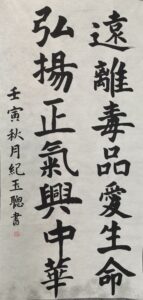 遠離毒品愛生命
弘揚正氣興中華
壬寅秋月紀玉聰書